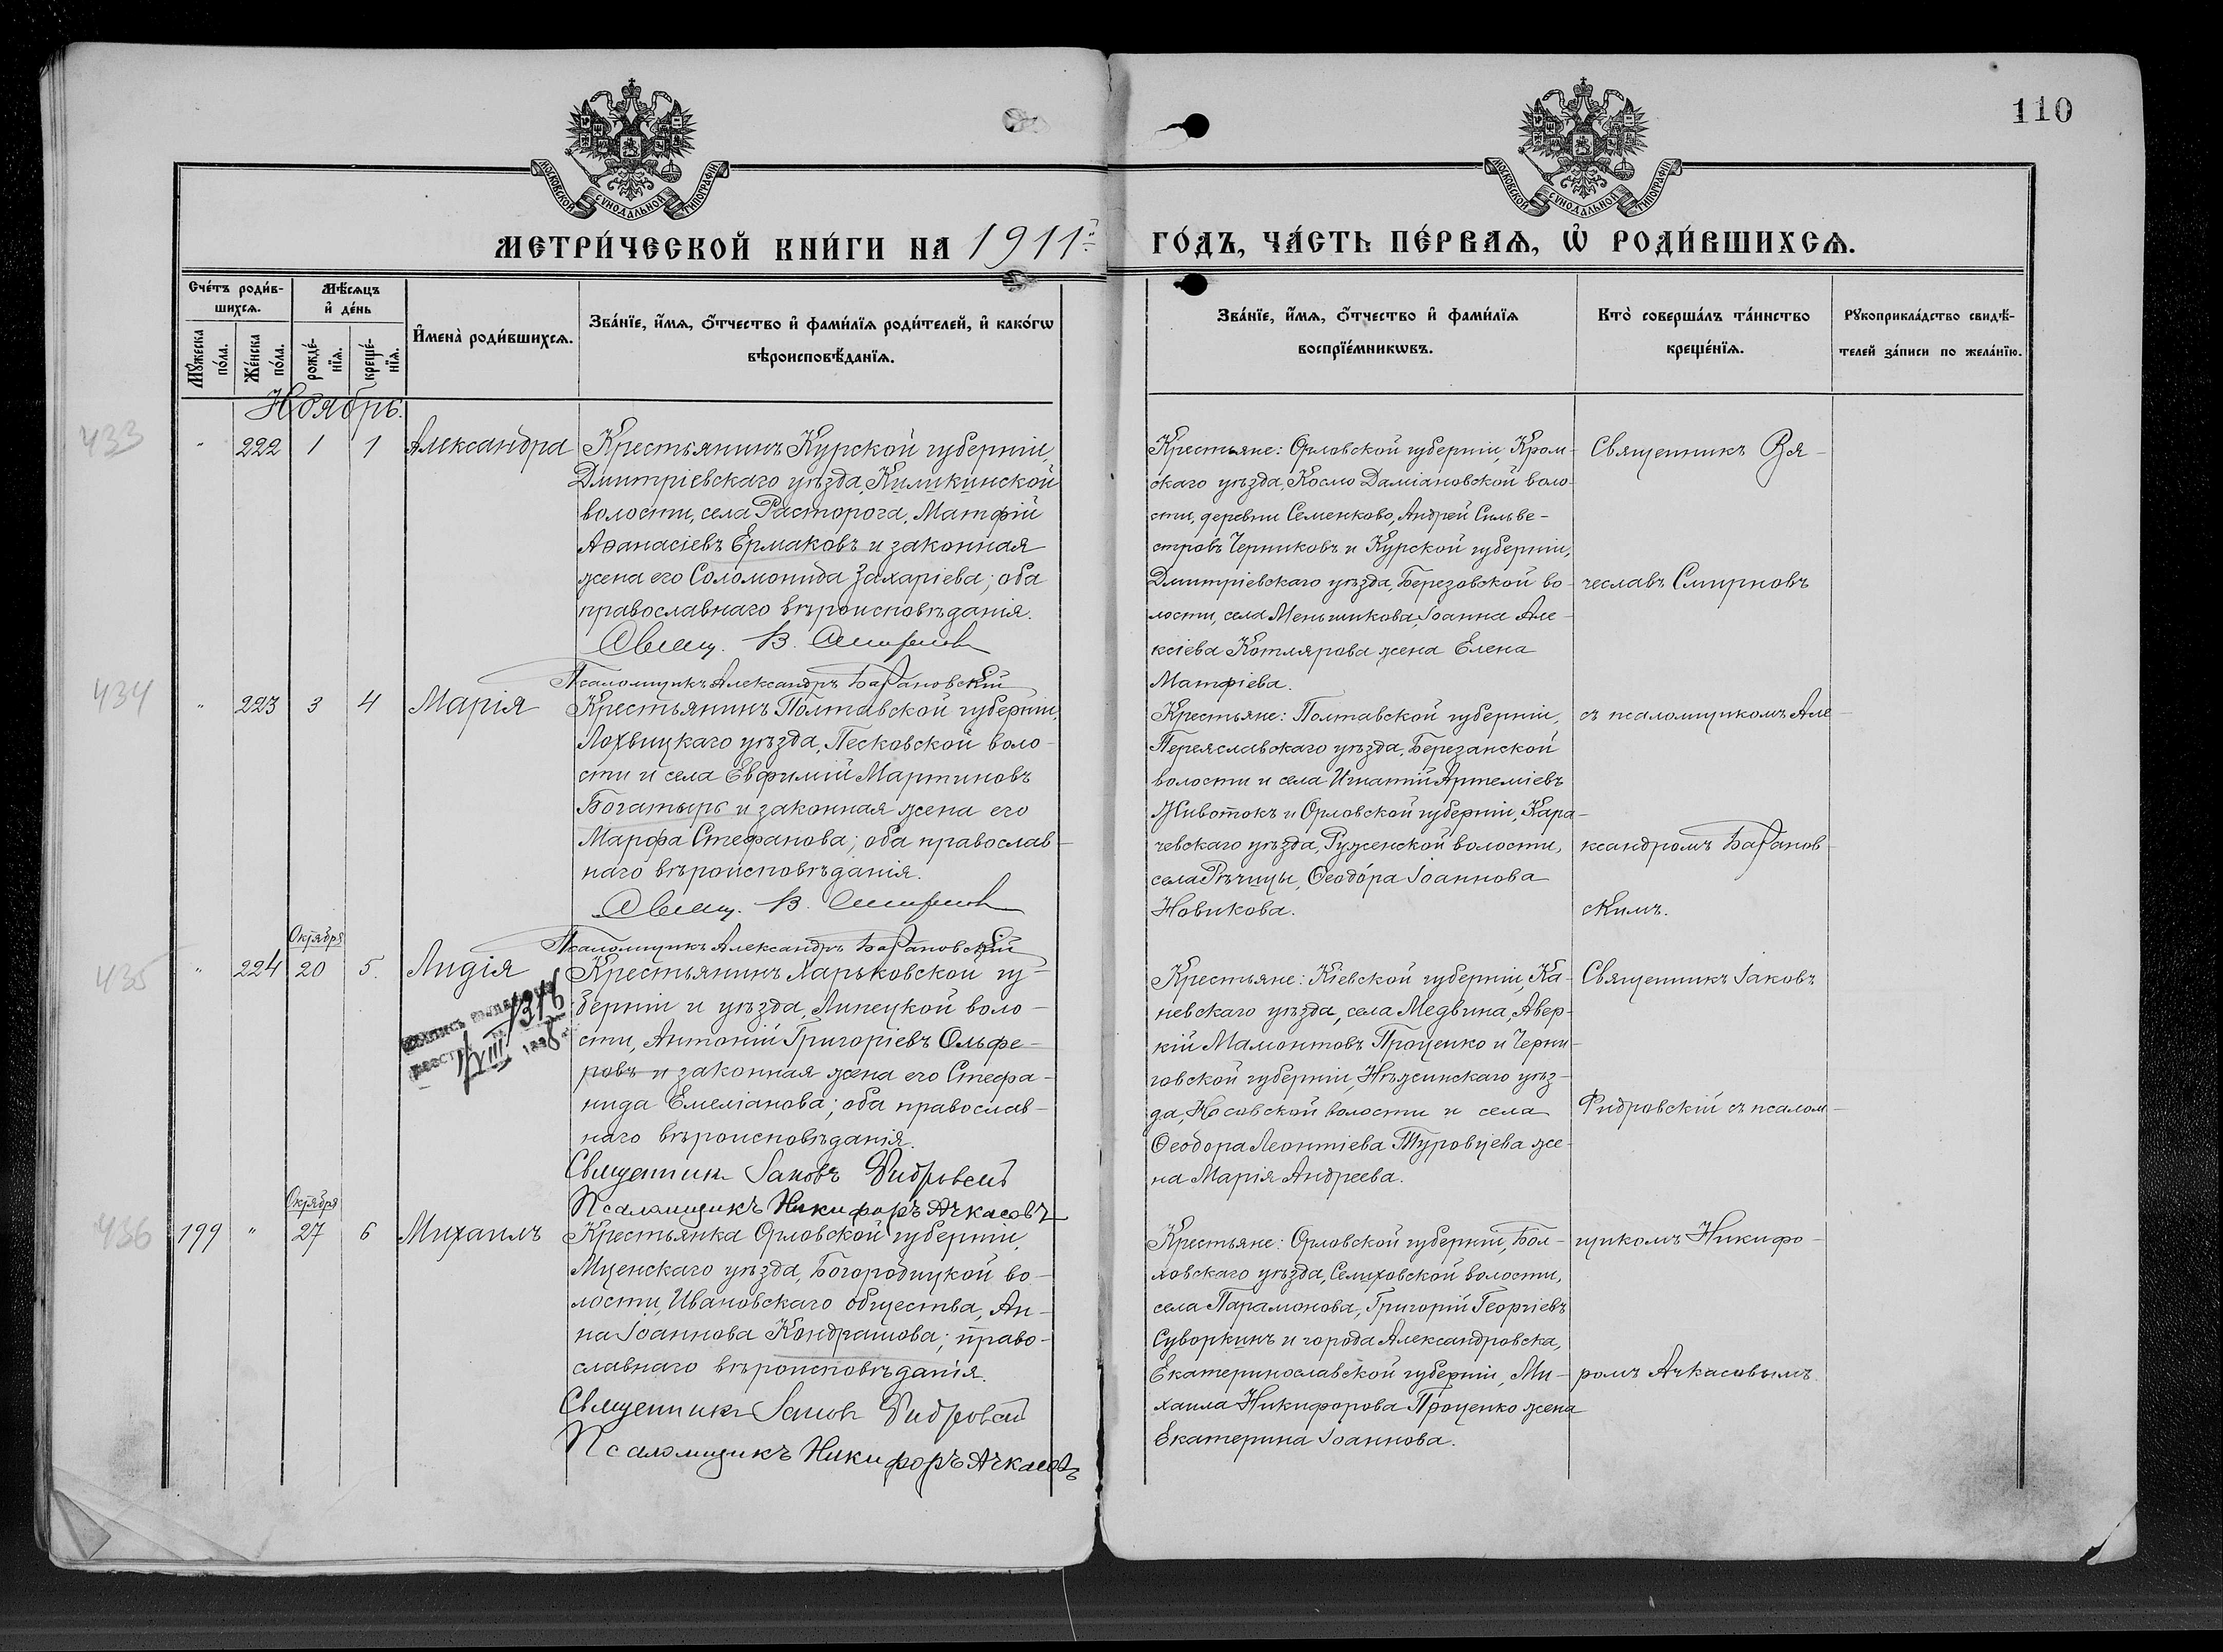 110
МОСКОВСКОЙ СѴНОДАЛЬНОЙ ТИПОГРАФІИ
МОСКОВСКОЙ СѴНОДАЛЬНОЙ ТИПОГРАФІИ
МЕТРИ́ЧЕСКОЙ КНИ́ГИ НА 1911й
ГО́ДЪ, ЧА́СТЬ ПЕ́РВАѦ, Ѡ҆ РОДИ́ВШИХСѦ.
Сче́тъ роди́в-
шихсѧ.
Мꙋжеска
по́ла.
Же́нска
по́ла.
Мѣ́сѧцъ
и҆ де́нь
рожде́-
нїѧ.
креще́-
нїѧ.
И҆мена̀ роди́вшихсѧ.
Зва́нїе, и҆́мѧ, ѻ҆́тчество и҆ фами́лїѧ роди́телей, и҆ како́гѡ
вѣроисповѣ́данїѧ.
Зва́нїе, и҆́мѧ, ѻ҆́тчество и҆ фами́лїѧ
воспрїе́мникѡвъ.
Кто̀ соверша́лъ та́инство
креще́нїѧ.
Рꙋкоприкла́дство свидѣ́-
телей за́писи по жела́нїю.
Ноябрь.
433
" 222 1 1 Александра
Крестьянинъ Курской губерніи,
Дмитріевскаго уѣзда, Киликинской
волости, села Расторога, Матфій
Аѳанасіевъ Ермаковъ и законная
жена его Соломонида Захаріева; оба
православнаго вѣроисповѣданія.
Свящ. В. Смирновъ
Псаломщикъ Александръ Барановскій
Крестьяне: Орловской губерніи, Кром-
скаго уѣзда, Космо Даміановской воло-
сти, деревни Семенково, Андрей Сильве-
стровъ Черниковъ и Курской губерніи,
Дмитріевскаго уѣзда, Березовской во-
лости, села Меньшикова, Іоанна Але-
ксіева Котлярова жена Елена
Матфіева.
Священникъ Вя-
чеславъ Смирновъ
434
" 223 3 4 Марія
Крестьянинъ Полтавской губерніи,
Лохвицкаго уѣзда, Песковской воло-
сти и села Евфимій Мартиновъ
Богатырь и законная жена его
Марфа Стефанова; оба православ-
наго вѣроисповѣданія.
Свящ. В. Смирновъ
Псаломщикъ Александръ Барановскій
Крестьяне: Полтавской губерніи,
Переяславскаго уѣзда, Березанской
волости и села Игнатій Артеміевъ
Животокъ и Орловской губерніи, Кара-
чевскаго уѣзда, Руженской волости,
села Рѣчицы, Ѳеодора Іоаннова
Новикова.
съ псаломщикомъ Але-
ксандромъ Баранов-
скимъ.
435
Октября
" 224 20 5. Лидія
1376
Крестьянинъ Харьковской гу-
берніи и уѣзда, Липецкой воло-
сти, Антоній Григоріевъ Ольфе-
ровъ и законная жена его Стефа-
нида Емеліанова; оба православ-
наго вѣроисповѣданія.
Священникъ Іаковъ Фидровскій
Псаломщикъ Никифоръ Ачкасовъ
Крестьяне: Кіевской губерніи, Ка-
невскаго уѣзда, села Медвина, Авер-
кій Мамонтовъ Проценко и Черни-
говской губерніи, Нѣжинскаго уѣз-
да, Носовской волости и села
Ѳеодора Леонтіева Туровцева же-
на Марія Андреева.
Священникъ Іаковъ
Фидровскій съ псалом-
436
Октября
199 " 27 6 Михаилъ
Крестьянка Орловской губерніи,
Мценскаго уѣзда, Богородицкой во-
лости, Ивановскаго общества, Ан-
на Іоаннова Кондрашова; право-
славнаго вѣроисповѣданія.
Священникъ Іаковъ Фидровскій
Псаломщикъ Никифоръ Ачкасовъ
Крестьяне: Орловской губерніи, Бол-
ховскаго уѣзда, Селиховской волости,
села Парамонова, Григорій Георгіевъ
Суворкинъ и города Александровска,
Екатеринославской губерніи, Ми-
хаила Никифорова Проценко жена
Екатерина Іоаннова.
щикомъ Никифо-
ромъ Ачкасовымъ.